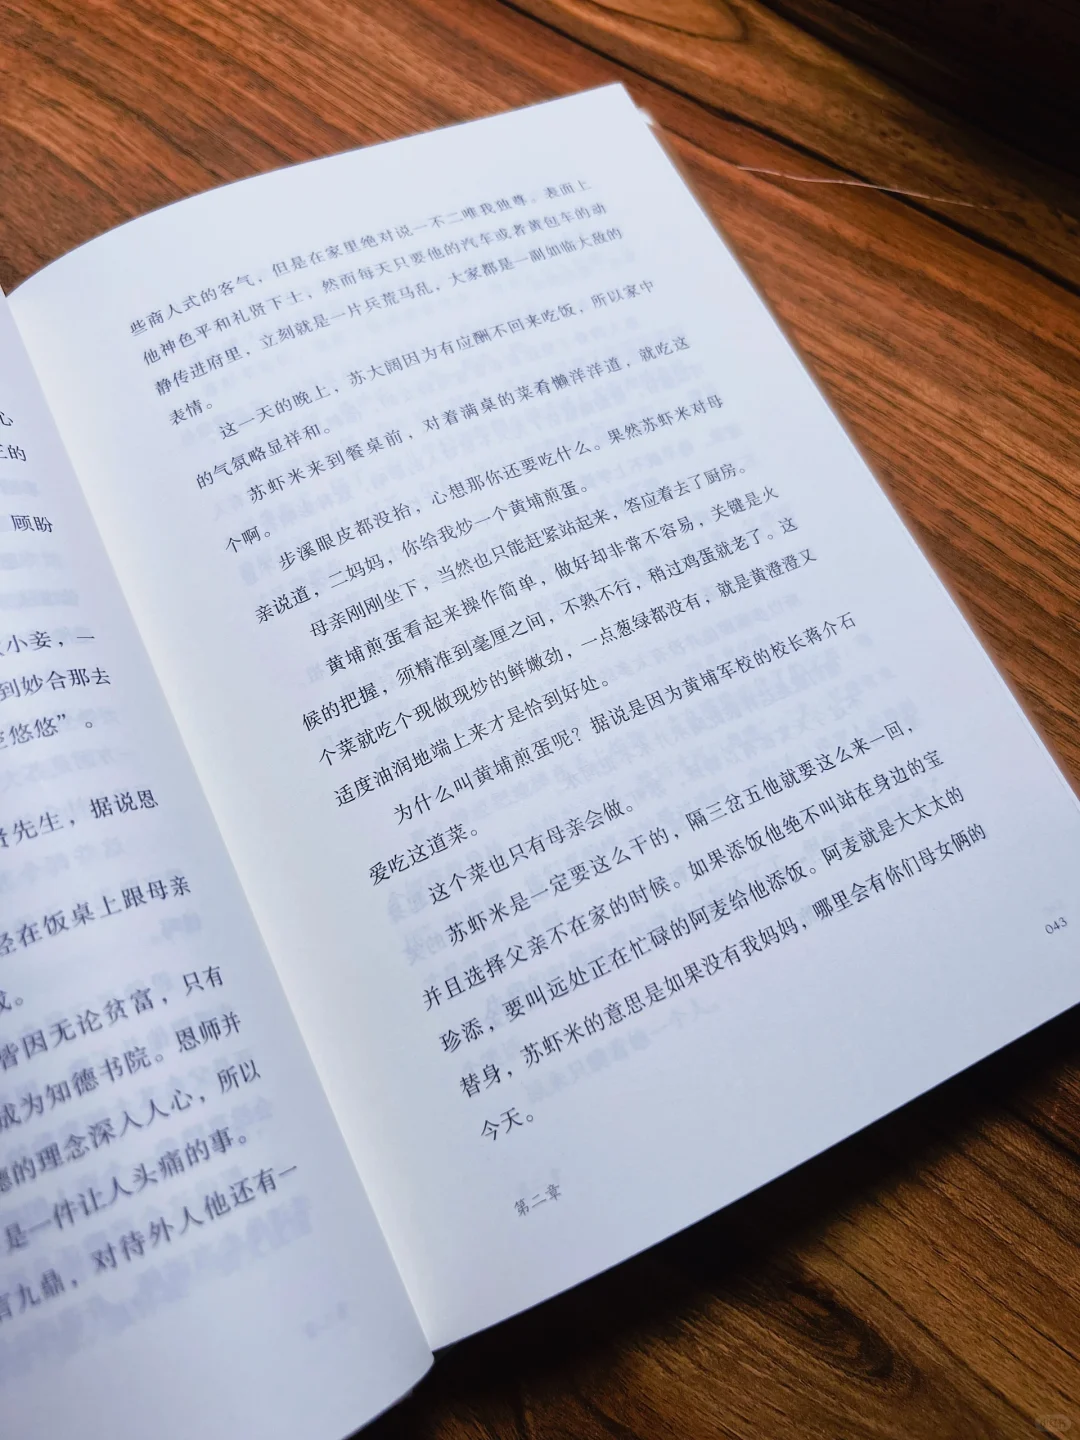 心
正的
顾盼
小妾，一
到妙合那去
空悠悠”。
贤先生，据说恩
经在饭桌上跟母亲
成。
皆因无论贫富，只有
成为知德书院。恩师并
德的理念深入人心，所以
是一件让人头痛的事。
言九鼎，对待外人他还有一
些商人式的客气，但是在家里绝对说一不二唯我独尊。表面上
他神色平和礼贤下士，然而每天只要他的汽车或者黄包车的动
静传进府里，立刻就是一片兵荒马乱，大家都是一副如临大敌的
表情。
这一天的晚上，苏大阔因为有应酬不回来吃饭，所以家中
的气氛略显祥和。
苏虾米来到餐桌前，对着满桌的菜肴懒洋洋道，就吃这
个啊。
步溪眼皮都没抬，心想那你还要吃什么。果然苏虾米对母
亲说道，二妈妈，你给我炒一个黄埔煎蛋。
母亲刚刚坐下，当然也只能赶紧站起来，答应着去了厨房。
黄埔煎蛋看起来操作简单，做好却非常不容易，关键是火
候的把握，须精准到毫厘之间，不熟不行，稍过鸡蛋就老了。这
个菜就吃个现做现炒的鲜嫩劲，一点葱绿都没有，就是黄澄澄又
适度油润地端上来才是恰到好处。
为什么叫黄埔煎蛋呢？据说是因为黄埔军校的校长蒋介石
爱吃这道菜。
这个菜也只有母亲会做。
苏虾米是一定要这么干的，隔三岔五他就要这么来一回，
并且选择父亲不在家的时候。如果添饭他绝不叫站在身边的宝
珍添，要叫远处正在忙碌的阿麦给他添饭。阿麦就是大太太的
替身，苏虾米的意思是如果没有我妈妈，哪里会有你们母女俩的
今天。
第二章
043